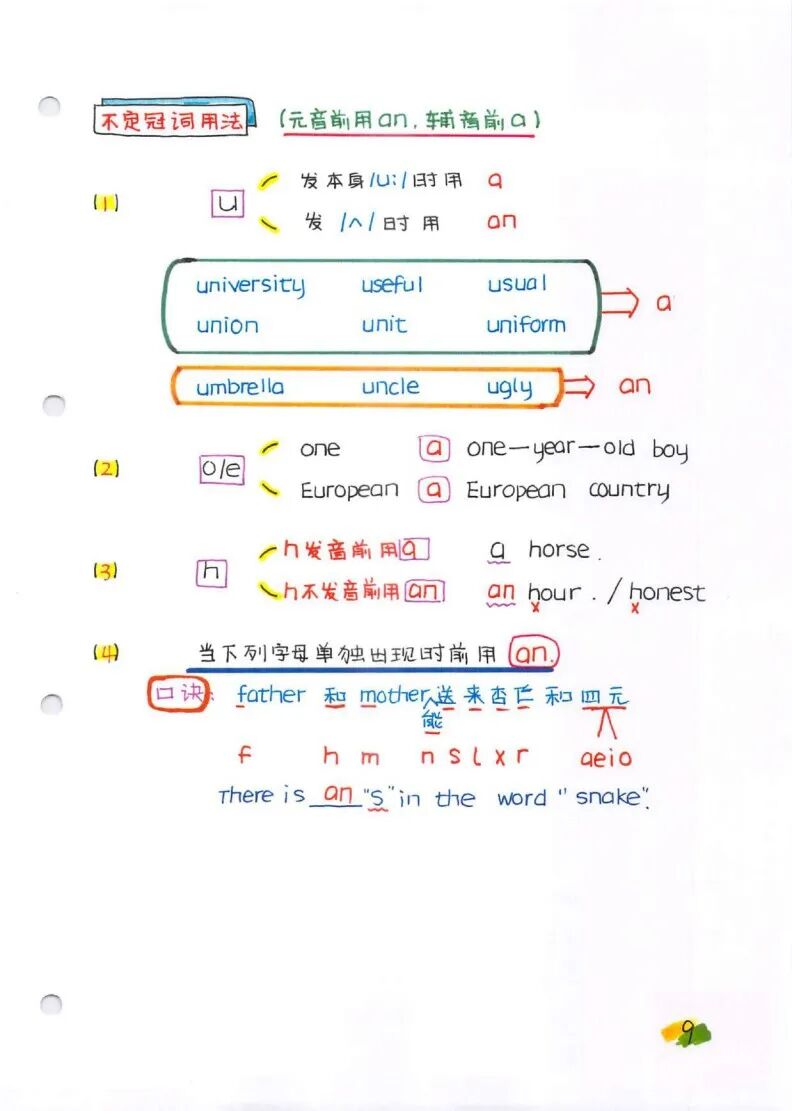 不定冠词用法 (元音前用an,辅音前a)
(1) u 发本身/u:/时用 a
发 /ʌ/时用 an
university useful usual
union unit uniform a
umbrella uncle ugly an
(2) o/e one a one—year—old boy
European a European country
(3) h h发音前用a a horse.
h不发音前用an an hour. / honest
(4) 当下列字母单独出现时前用 an.
口诀: father 和 mother能送来杏仁和四元
f h m n s l x r aeio
There is an "s" in the word "snake".
9